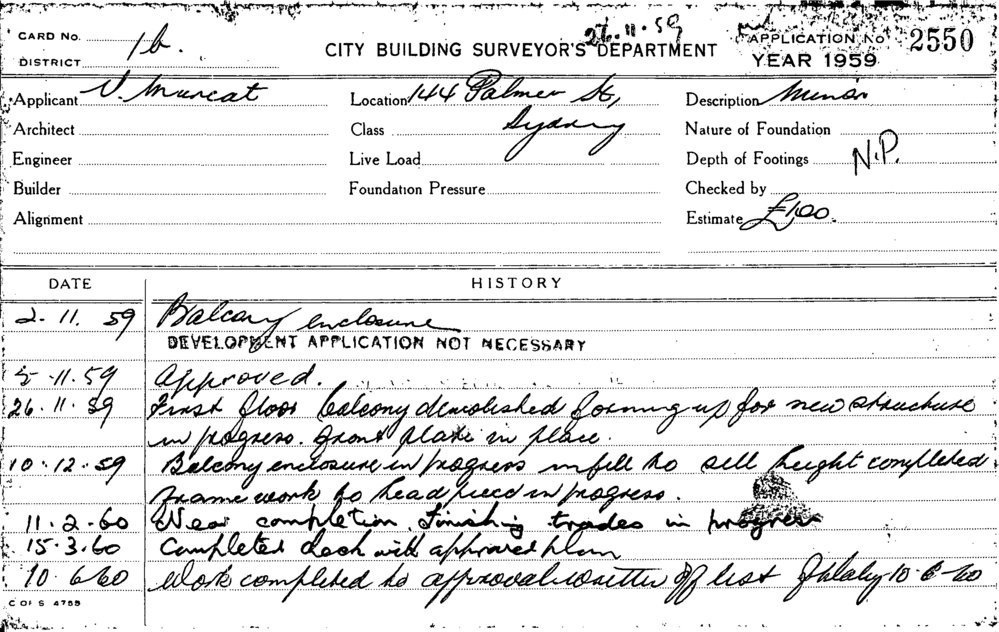 CARD No.
1b.
DISTRICT
26.11.59
CITY BUILDING SURVEYOR'S DEPARTMENT
APPLICATION No 2550
YEAR 1959
Applicant V. Muscat
Location 144 Palmer St,
Sydney
Description Minor
Architect
Class
Nature of Foundation
Engineer
Live Load
Depth of Footings N.P.
Builder
Foundation Pressure
Checked by
Alignment
Estimate £100.
DATE HISTORY
2. 11. 59 Balcony enclosure
DEVELOPMENT APPLICATION NOT NECESSARY
5 -11.59 Approved.
26.11.59 First floor balcony demolished forming up for new structure
in progress. Front plate in place.
10.12.59 Balcony enclosure in progress infill to sill height completed
Frame work to head piece in progress.
11.2-60 Near completion. Finishing trades in progress
15.3.60 Completed check with approved plan
10.6.60 Work completed to approval written off list 10-6-60
C OF S 4755